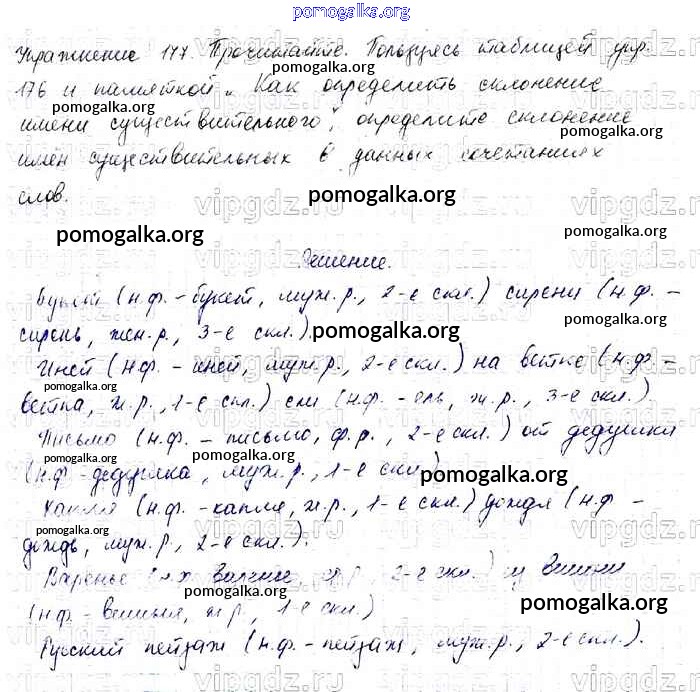 pomogalka.org
Упражнение 177. Прочитайте. Пользуясь таблицей упр.
176 и памяткой „Как определить склонение
имени существительного", определите склонение
имён существительных в данных сочетаниях
слов.
Решение.
Букет (н.ф. - букет, муж.р., 2-е скл.) сирени (н.ф. -
сирень, жен.р., 3-е скл.)
Иней (н.ф. - иней, муж.р., 2-е скл.) на ветке (н.ф. -
ветка, ж.р., 1-е скл.) ели (н.ф. - ель, ж.р., 3-е скл.).
Письмо (н.ф. - письмо, ф.р., 2-е скл.) от дедушки
(н.ф - дедушка, муж.р., 1-е скл.)
Капля (н.ф. - капля, ж.р., 1-е скл.) дождя (н.ф -
дождь, муж.р., 2-е скл.).
Варенье 2-е скл.) из вишни
(н.ф. - вишня, ж.р., 1-е скл.)
Русский пейзаж (н.ф. - пейзаж, муж.р., 2-е скл.).